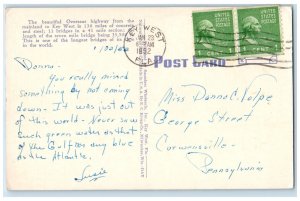 The beautiful Overseas highway from the
mainland to Key West is 138 miles of concrete
and steel; 13 bridges in a 41 mile section. The
length of the seven mile bridge being 35,716 ft.
This is one of the longest bridges of its kind
in the world.
Donna -
You really missed
something by not coming
down. It was just out
of this world. Never saw
such green water as that
of the Gulf or any blue as
the Atlantic.
Susie
KEY WEST
1952
FLA
UNITED STATES POSTAGE
1 CENT 1
UNITED STATES POSTAGE
1 CENT 1
POST CARD
Miss Donna C. Volpe
George Street
Curwensville
Pennsylvania